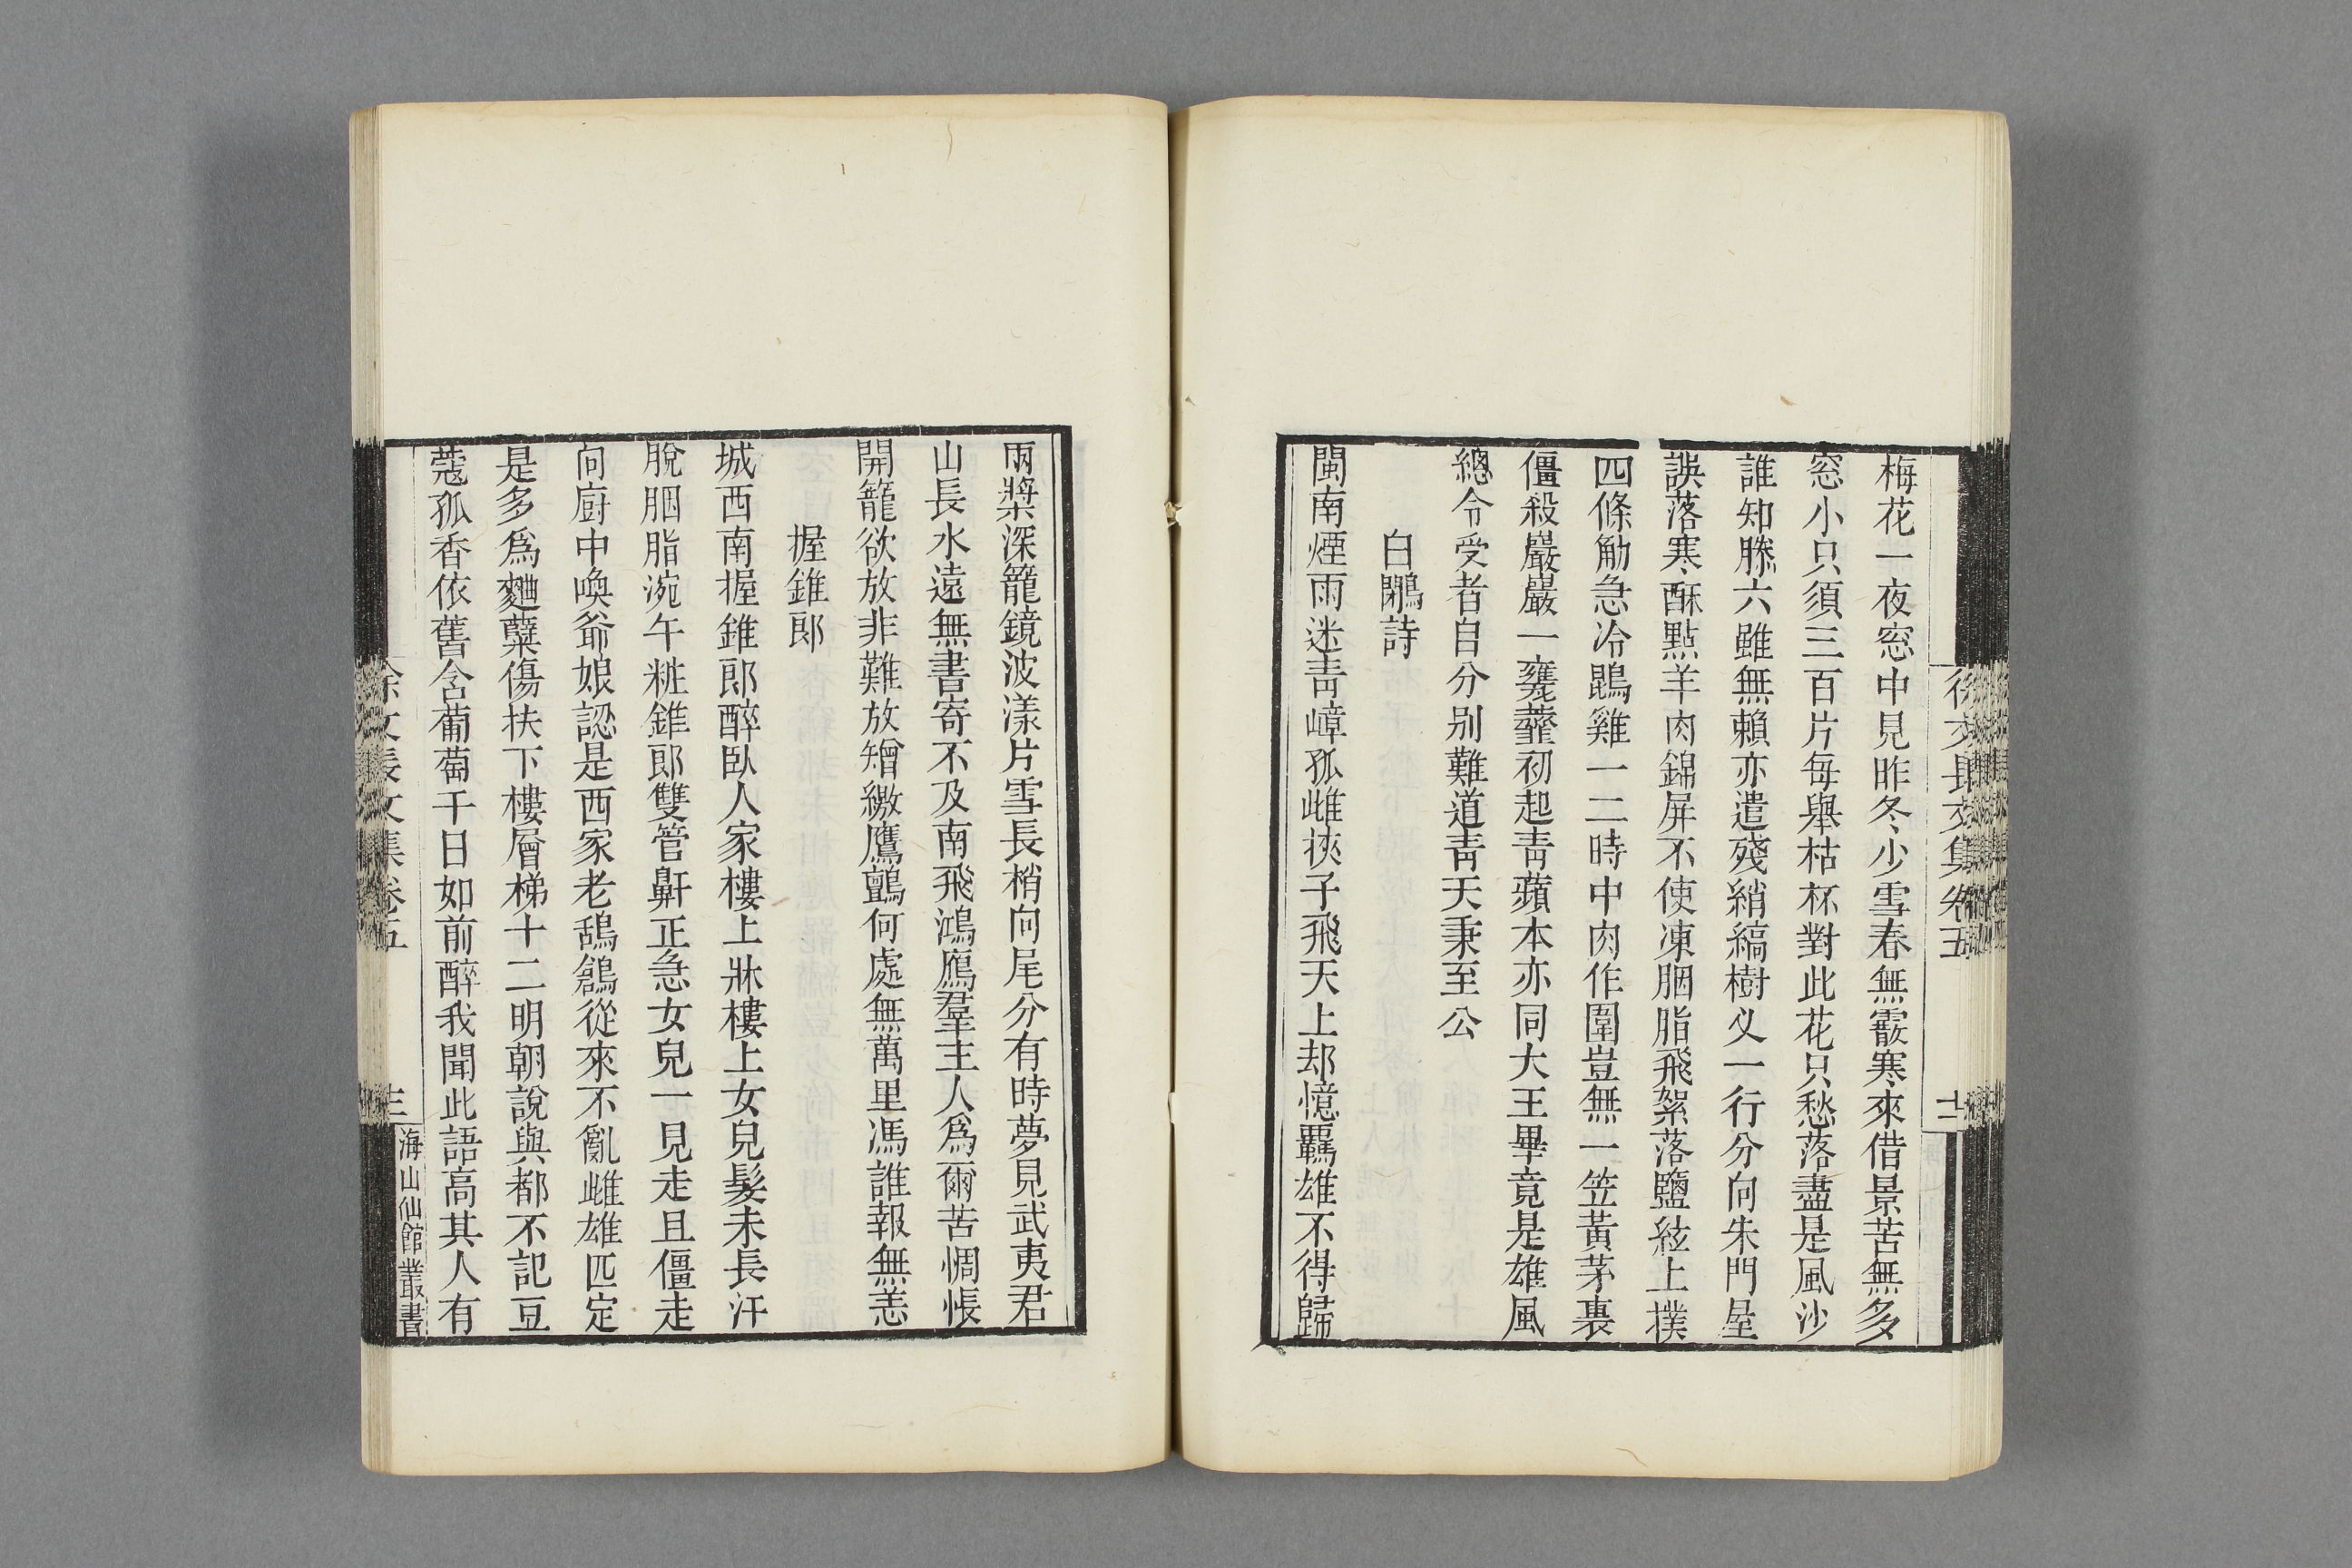 徐文長文集卷五
十二
梅花一夜窓中見昨冬少雪春無霰寒來借景苦無多
窓小只須三百片每舉枯杯對此花只愁落盡是風沙
誰知滕六雖無賴亦遣殘綃縞樹义一行分向朱門屋
誤落寒酥點羊肉錦屏不使凍胭脂飛絮落鹽紜上撲
四條觔急冷鵾雞一二時中肉作圍豈無一笠黃茅裏
僵殺嚴巖一甕虀初起靑蘋本亦同大王畢竟是雄風
總令受者自分别難道靑天秉至公
白鷴詩
閩南煙雨迷靑嶂孤雌挾子飛天上却憶羈雄不得歸
兩槳深籠鏡波漾片雪長梢向尾分有時夢見武夷君
山長水遠無書寄不及南飛鴻鴈羣主人爲爾苦惆悵
開籠欲放非難放矰繳鷹鸇何處無萬里馮誰報無恙
握錐郎
城西南握錐郎醉臥人家樓上牀樓上女兒髮未長汗
脫胭脂涴午粧錐郎雙管鼾正急女兒一見走且僵走
向廚中喚爺娘認是西家老鴰鶬從來不亂雌雄匹定
是多爲麯糵傷扶下樓層梯十二明朝說與都不記豆
蔻孤香依舊含葡萄千日如前醉我聞此語高其人有
徐文長文集卷五
海山仙館叢書